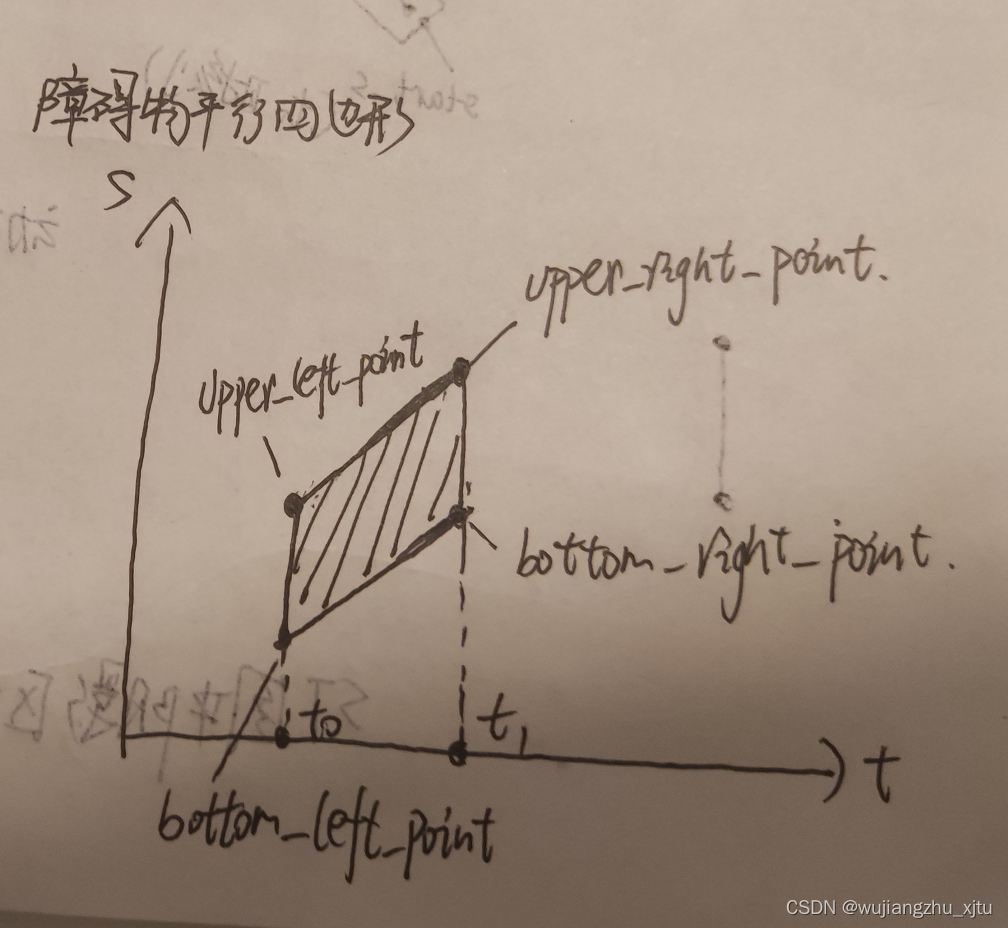 障碍物平行四边形
S
upper_right_point.
upper_left_point
bottom_right_point.
t₀
t₁
t
bottom_left_point
CSDN @wujiangzhu_xjtu